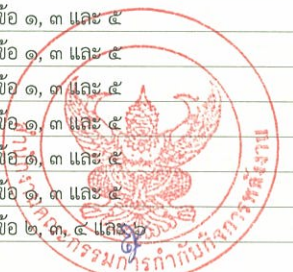 ข้อ ๑, ๓ และ ๕
ข้อ ๑, ๓ และ ๕
ข้อ ๑, ๓ และ ๕
ข้อ ๑, ๓ และ ๕
ข้อ ๑, ๓ และ ๕
ข้อ ๑, ๓ และ ๕
ข้อ ๒, ๓, ๔ และ ๖
สำนักงานคณะกรรมการกำกับกิจการพลังงาน